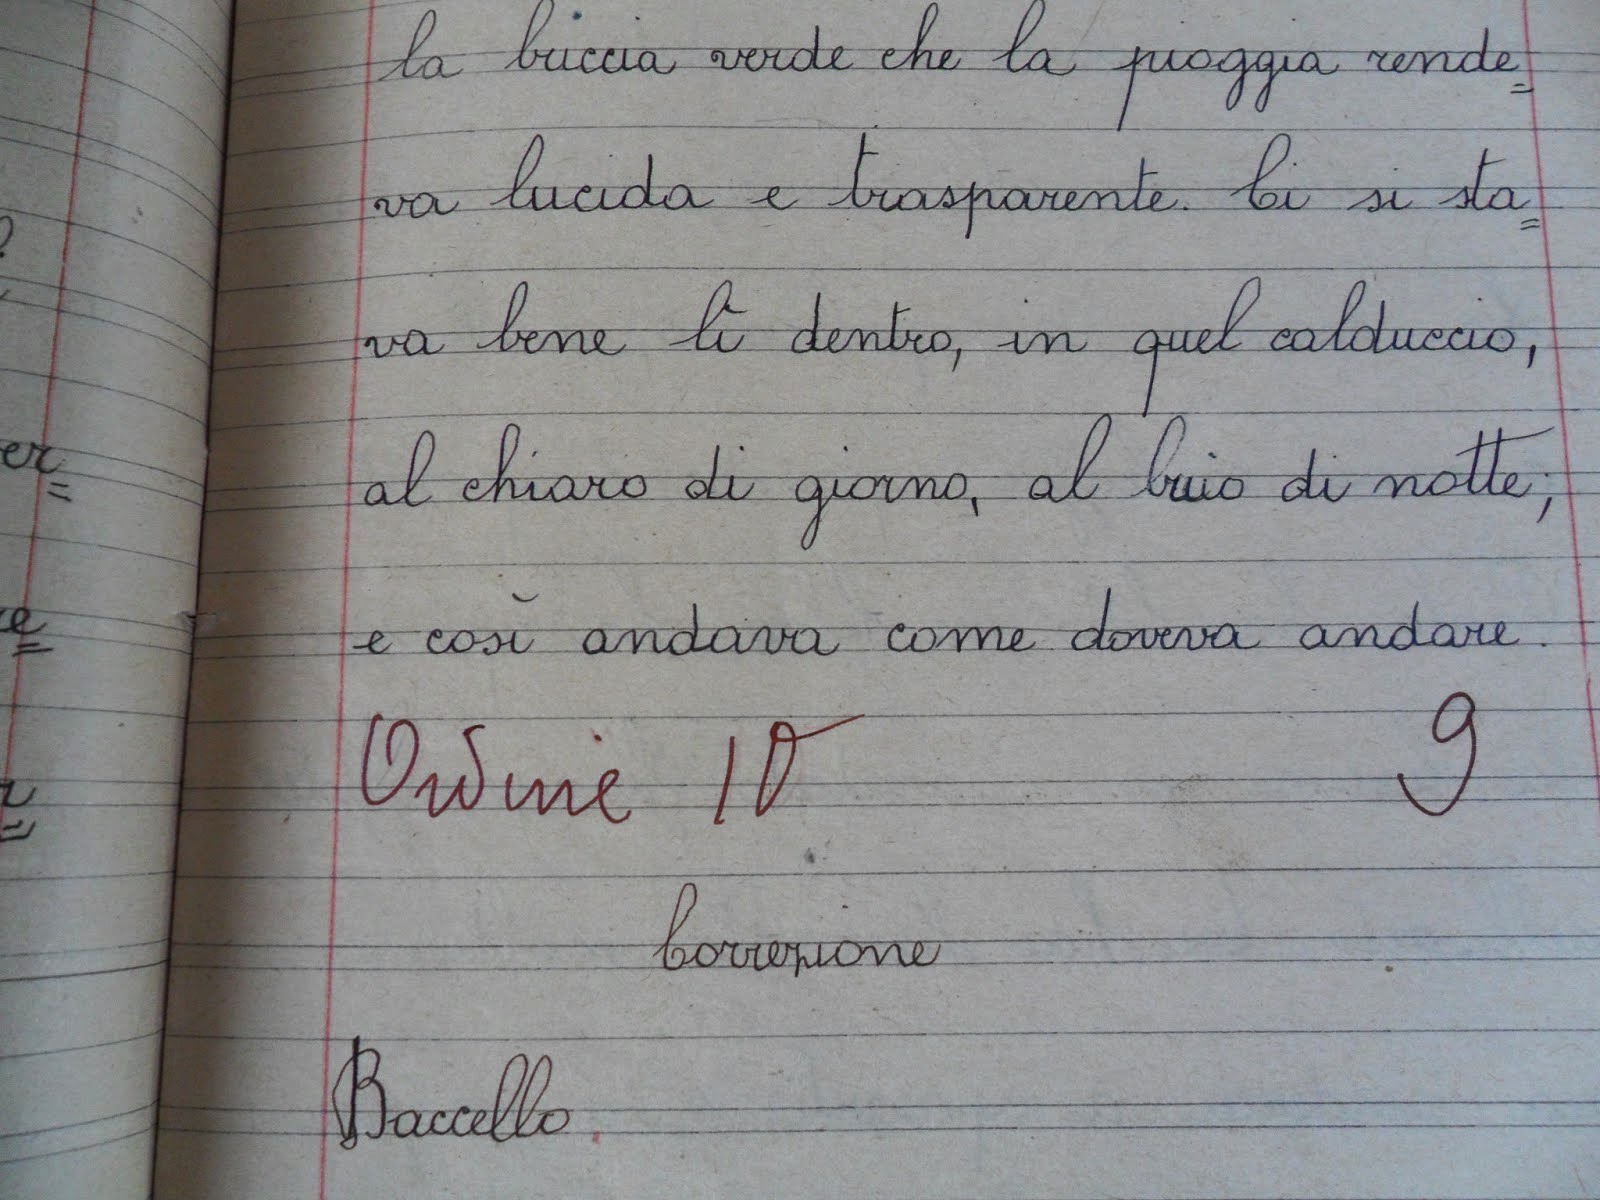 la buccia verde che la pioggia rende=
va lucida e trasparente. Ci si sta=
va bene lì dentro, in quel calduccio,
al chiaro di giorno, al buio di notte;
e così andava come doveva andare.
Ordine 10 9
Correzione
Baccello.